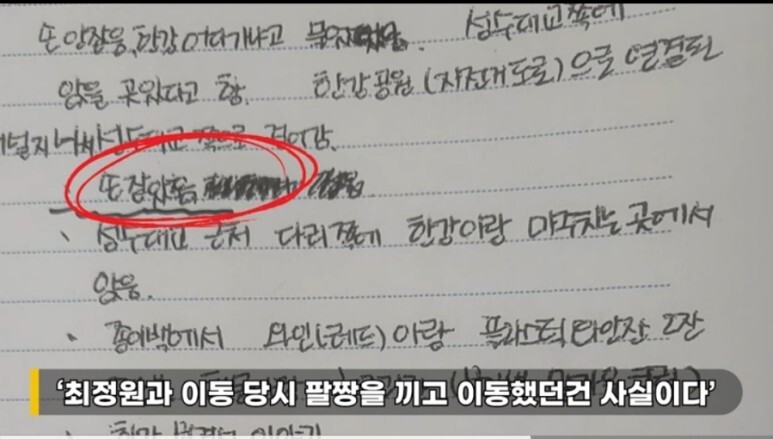 손 안잡음, 한강 어디가냐고 성수대교쪽에
앉을 곳있다고 함. 한강공원 (자전거도로)으로 연결된
쪽으로 걸어감.
손 잡았음
성수대교 근처 다리쪽에 한강이랑 마주치는 곳에서
앉음.
종이백에서 와인(레드)이랑 플라스틱와인잔 2잔
‘최정원과 이동 당시 팔짱을 끼고 이동했던건 사실이다’